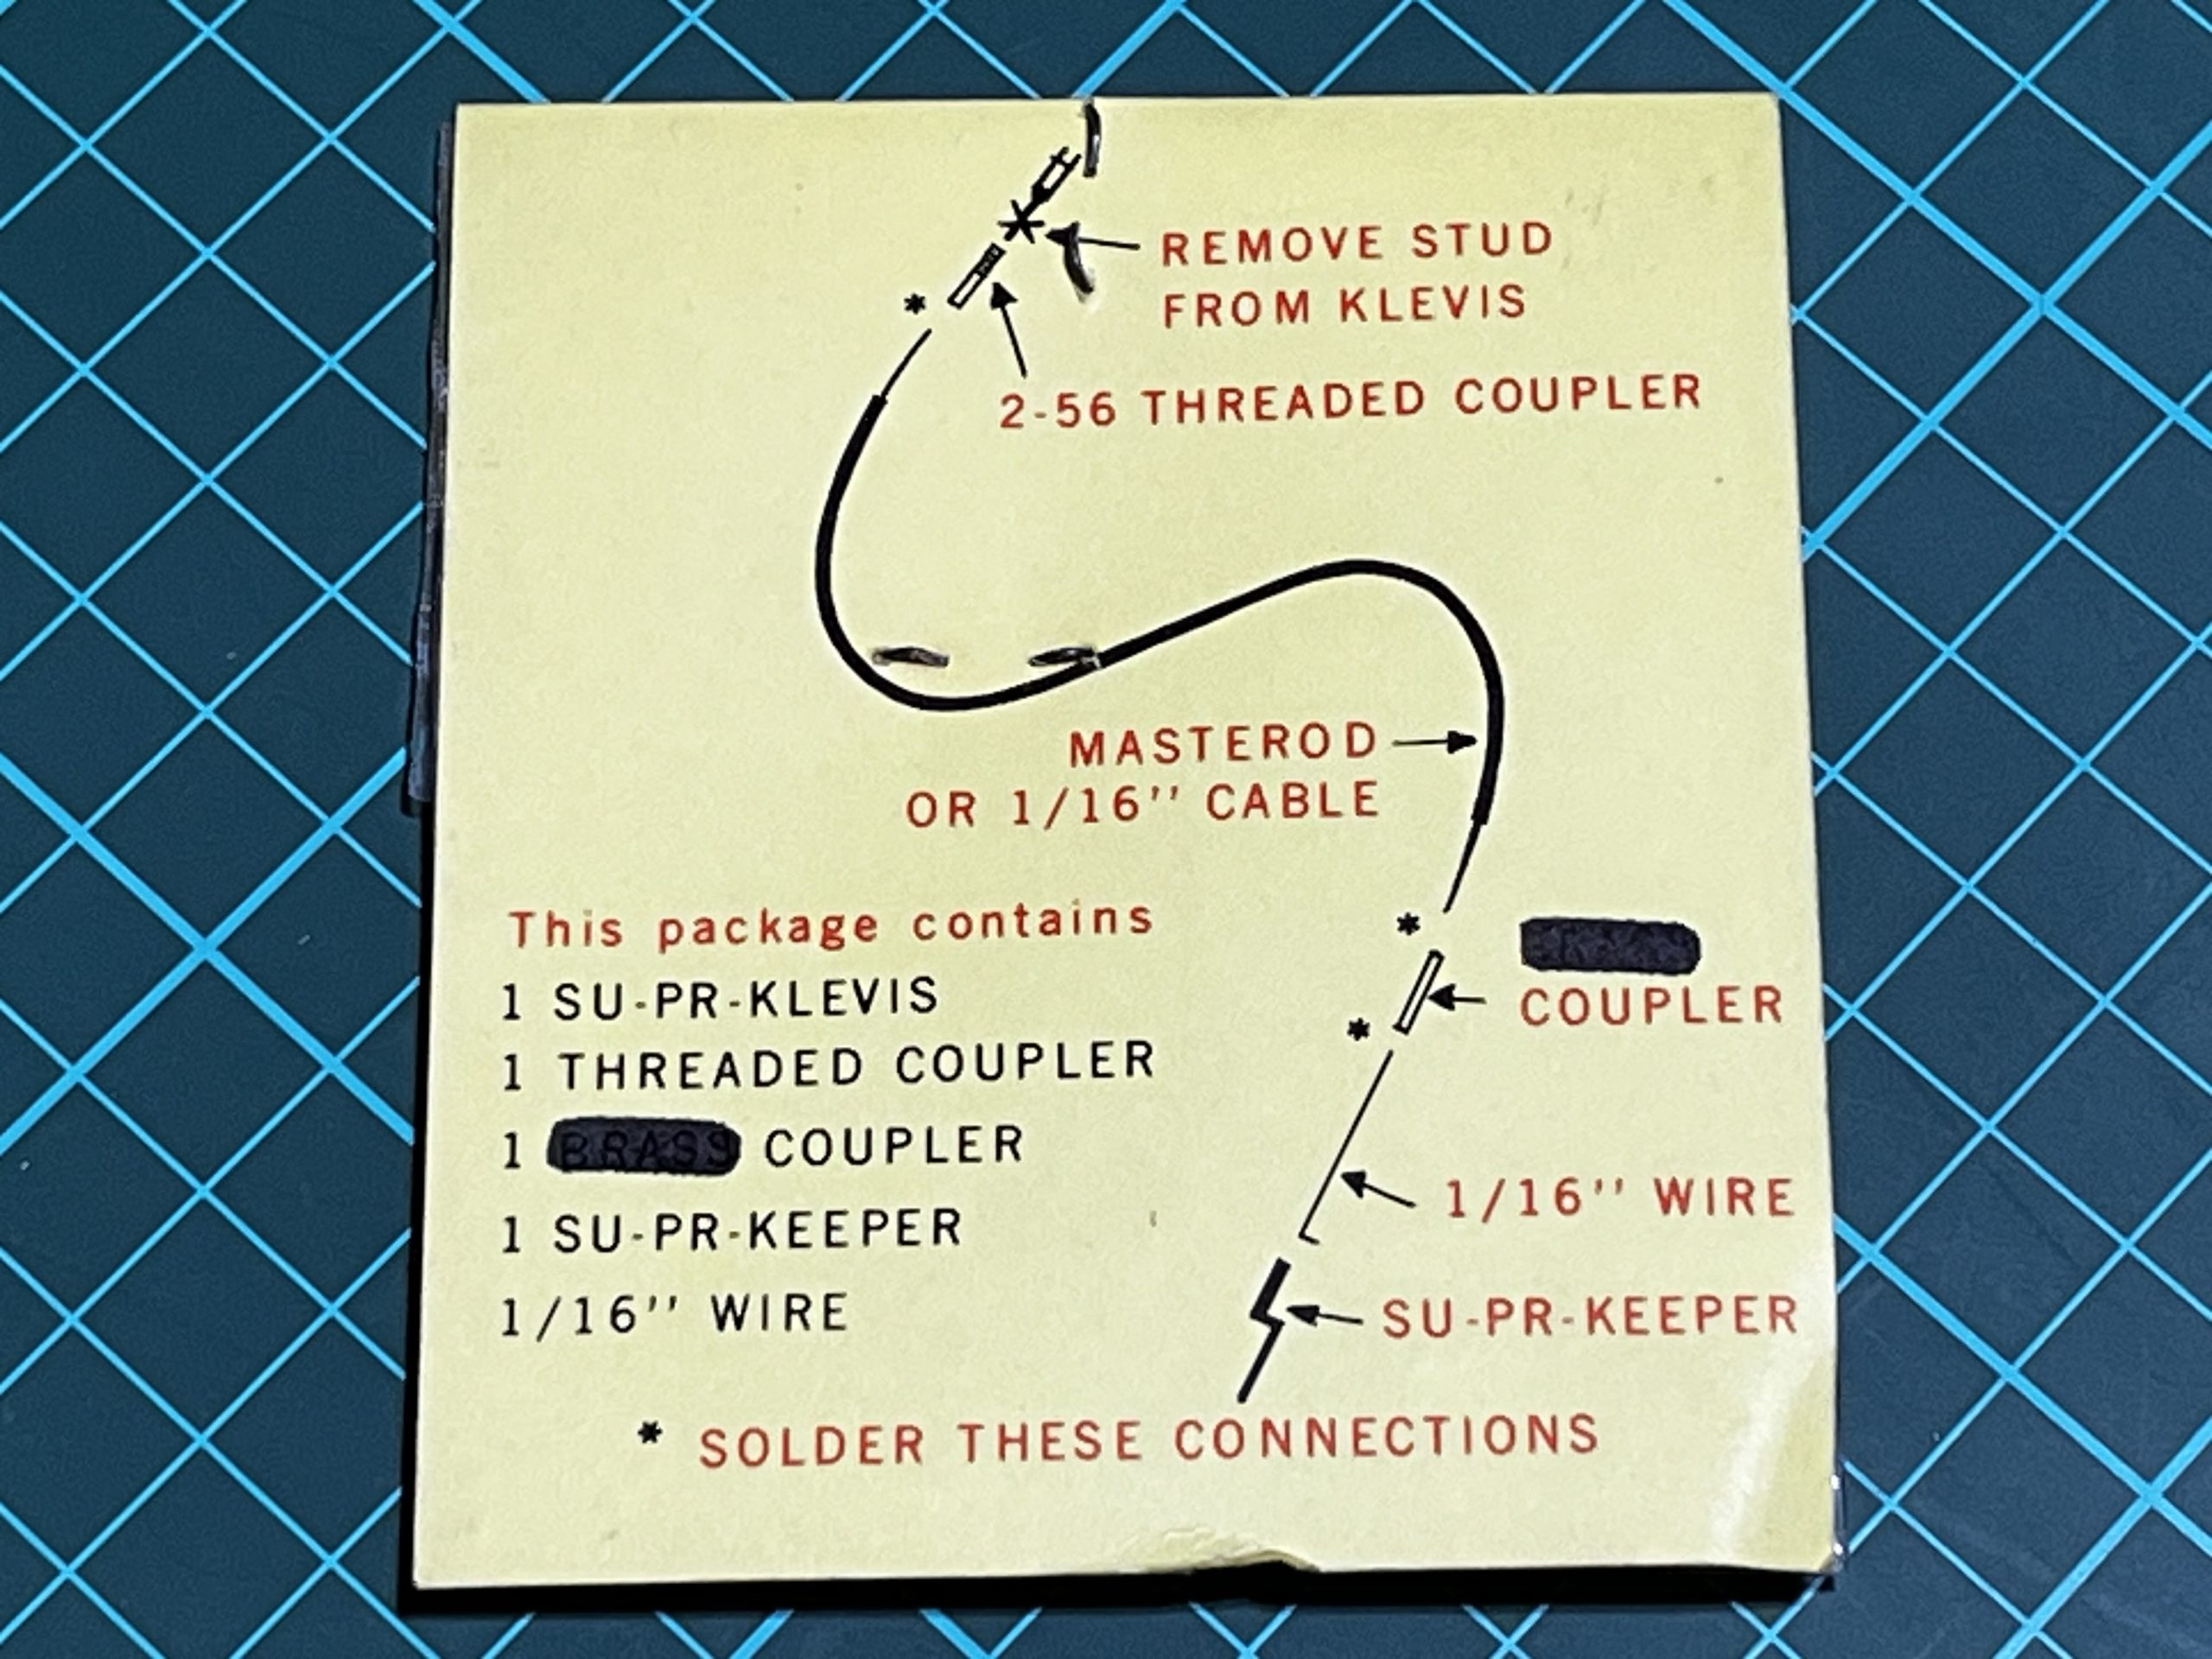 REMOVE STUD
FROM KLEVIS
* 2-56 THREADED COUPLER
MASTEROD
OR 1/16" CABLE
This package contains
1 SU-PR-KLEVIS
1 THREADED COUPLER
1 BRASS COUPLER
1 SU-PR-KEEPER
1/16" WIRE
*
COUPLER
*
1/16" WIRE
SU-PR-KEEPER
* SOLDER THESE CONNECTIONS